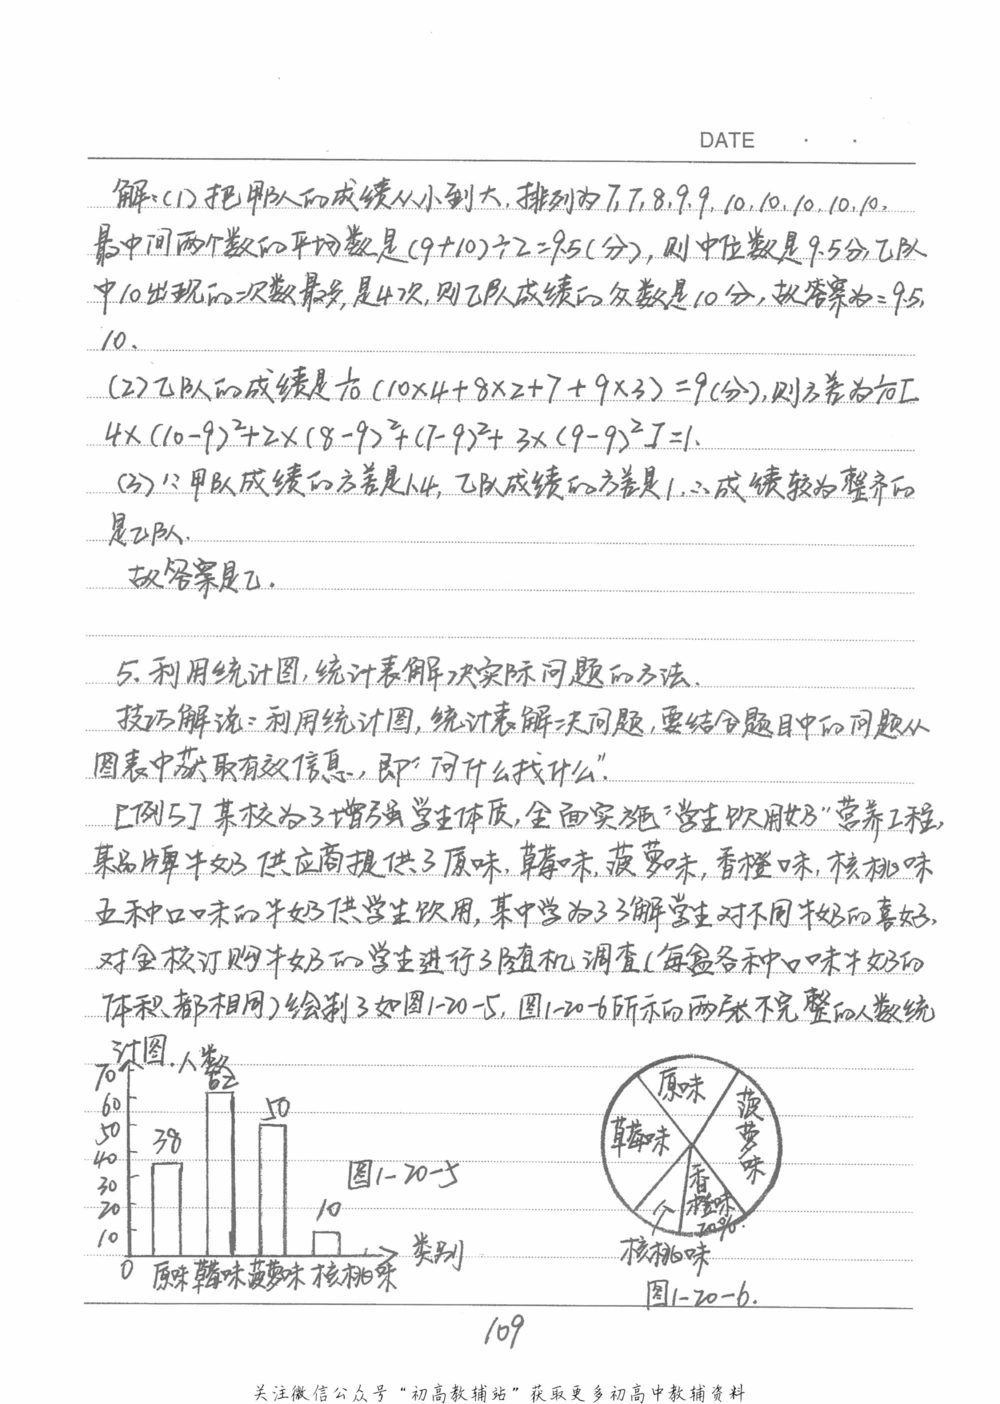 DATE · ·
解:(1)把甲队的成绩从小到大,排列为7,7,8,9,9,10,10,10,10,10,
最中间两个数的平均数是(9+10)÷2=9.5(分),则中位数是9.5分,乙队
中10出现的次数最多,是4次,则乙队成绩的众数是10分,故答案为=9.5,
10.
(2)乙队的成绩是1/10(10×4+8×2+7+9×3)=9(分),则方差为1/10[
4×(10-9)²+2×(8-9)²+(7-9)²+3×(9-9)²]=1.
(3)∵甲队成绩的方差是1.4,乙队成绩的方差是1,∴成绩较为整齐的
是乙队.
故答案是乙.
5.利用统计图,统计表解决实际问题的方法.
技巧解说:利用统计图,统计表解决问题,要结合题目中的问题从
图表中获取有效信息,即“问什么找什么”.
[例5]某校为了增强学生体质,全面实施“学生饮用奶”营养工程,
某品牌牛奶供应商提供了原味,草莓味,菠萝味,香橙味,核桃味
五种口味的牛奶供学生饮用,某中学为了了解学生对不同牛奶的喜好,
对全校订购牛奶的学生进行了随机调查(每盒各种口味牛奶的
体积都相同)绘制了如图1-20-5,图1-20-6所示的两张不完整的人数统
计图.
人数
70
60
50
40
30
20
10
0
38
62
50
10
原味 草莓味 菠萝味 核桃味
类别
图1-20-5
原味
草莓味
菠萝味
香橙味
20%
核桃味
图1-20-6.
109
关注微信公众号“初高教辅站”获取更多初高中教辅资料